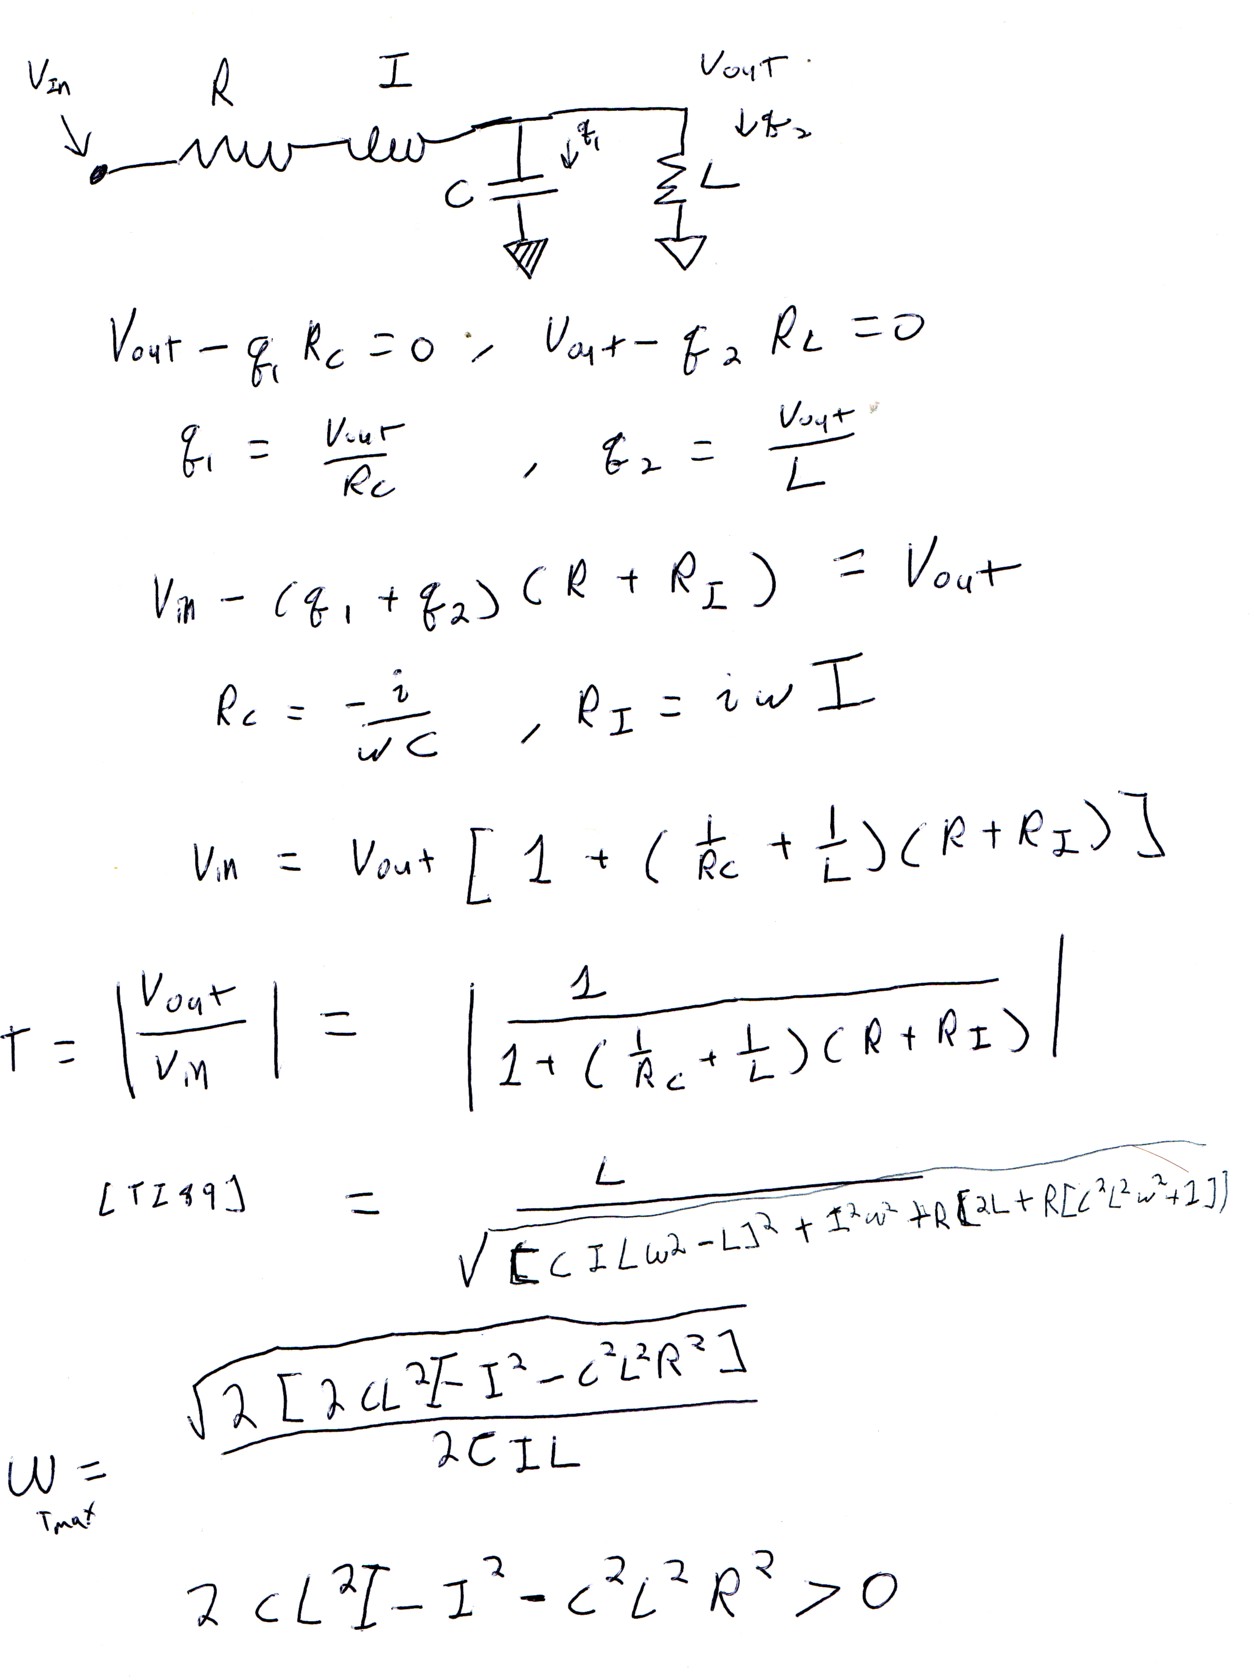 Vin R I Vout
q1 q2
C L
Vout - q1 Rc = 0 ; Vout - q2 RL = 0
q1 = Vout/Rc , q2 = Vout/L
Vin - (q1 + q2)(R + RI) = Vout
Rc = -i/wC , RI = iwI
Vin = Vout [1 + (1/Rc + 1/L)(R + RI)]
T = |Vout/Vin| = |1/(1 + (1/Rc + 1/L)(R + RI))|
[TI89] = L/√([CILw²-L]² + I²w² + R[2L + R[C²L²w²+1]])
w Tmax = √(2[2CL²I - I² - C²L²R²])/2CIL
2CL²I - I² - C²L²R² > 0